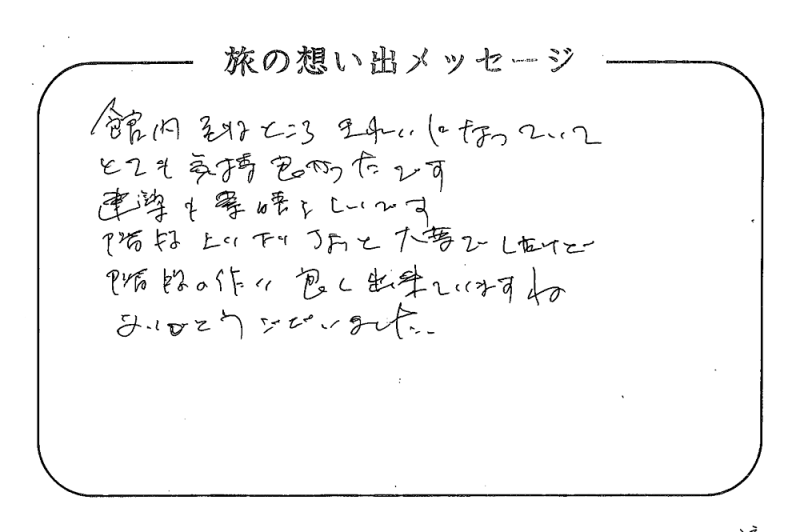 旅の想い出メッセージ
館内 ところ きれいになっていて
とても気持良かったです
建築も素晴らしいです
階段 上り下り ちょっと大変でしたけど
階段の作り 良く出来ていますね
ありがとうございました